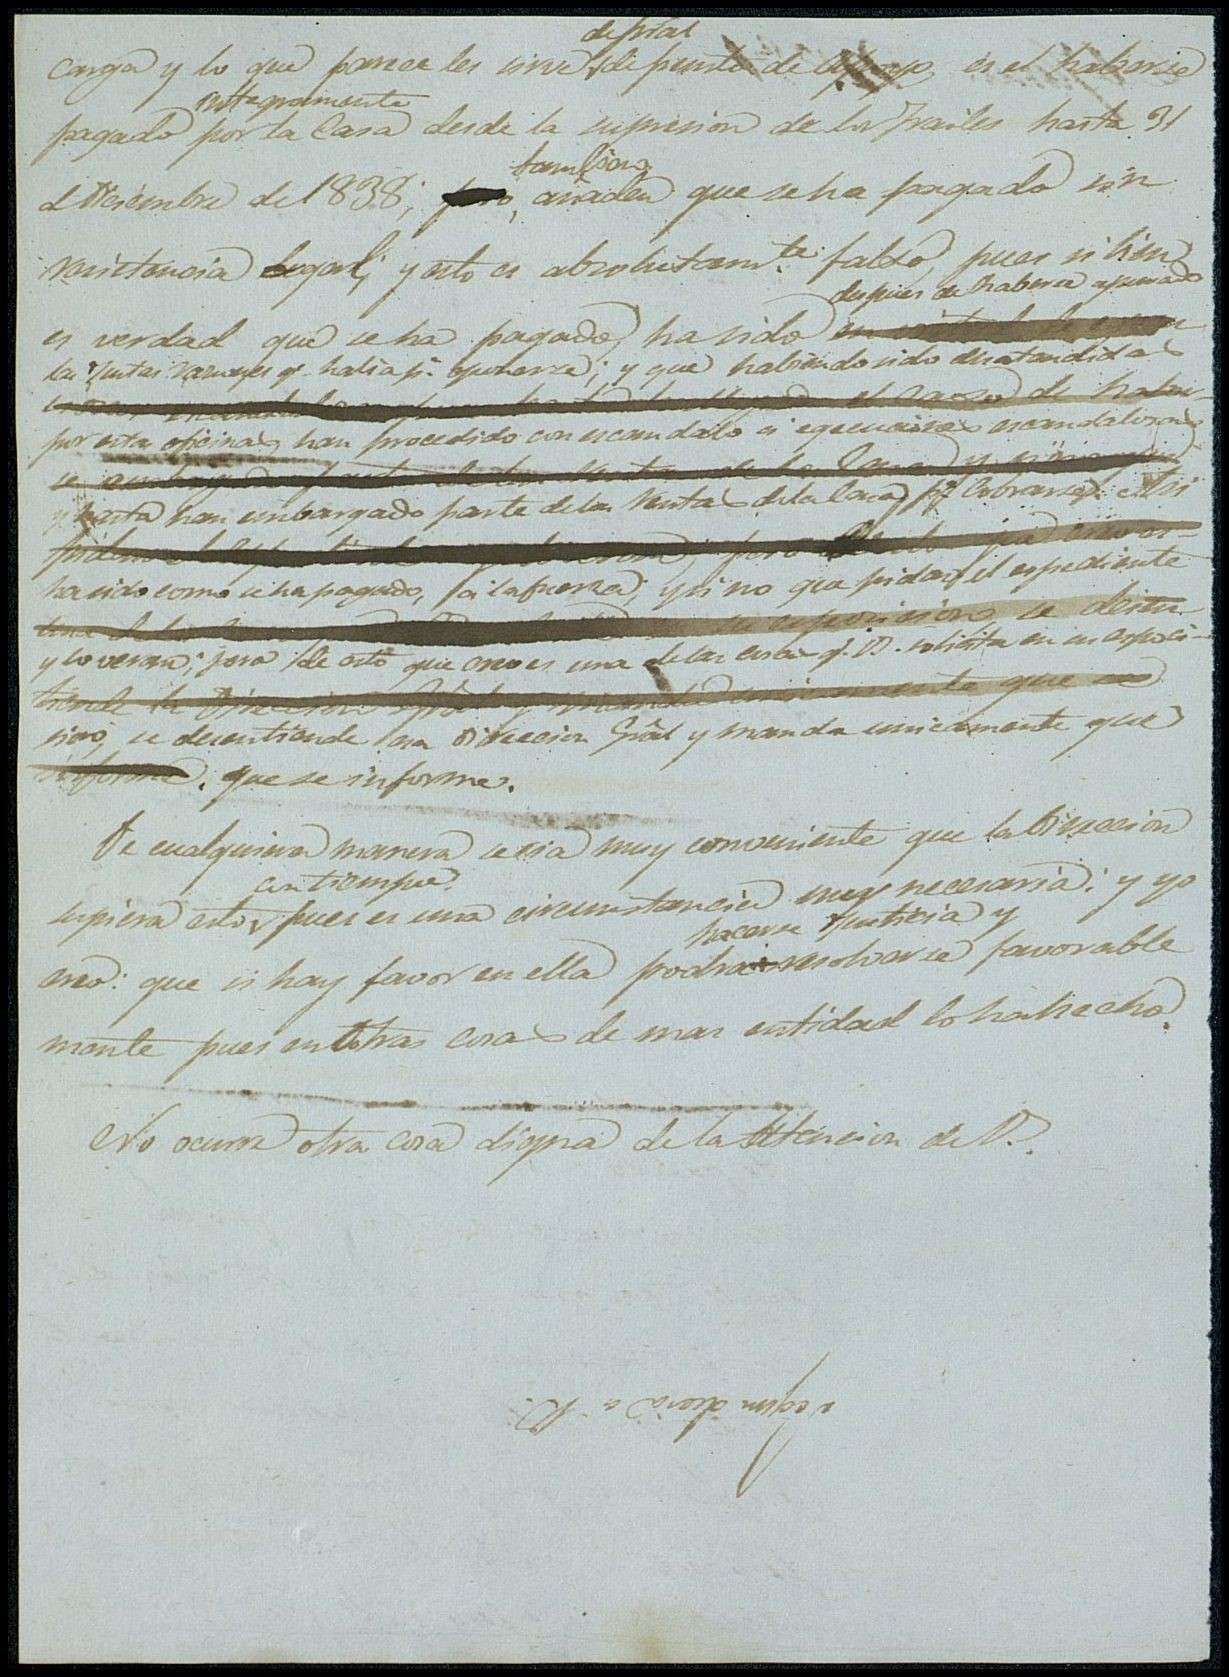 de pral
carga y lo que parece les sirve de punto de apoyo, es el haberse
integramente
pagado por la Casa desde la supresion de los Frailes hasta 31
d Diciembre de 1838; pero, añaden que se ha pagado sin
tambien
resistencia legal; y esto es absolutamte falso, pues si bien
despues de haberse apurado
es verdad que se ha pagado, ha sido
las justas razones q. habia pa. oponerse; y que habiendo sido desatendidas
por esta oficina han procedido con escandalo a egecuciones escandalosas
y hasta han embargado parte de las rentas de la Casa pa. Cobrarse. Asi
ha sido como se ha pagado, a la fuerza; y si no que pidan el espediente
y lo veran; pero de esto que creo es una de las cosas q. V. solicita en su esposi-
cion, se desentiende esa Direccion Gral y manda unicamente que
informe. que se informe.
De cualquiera manera seria muy conveniente que la Direccion
con tiempo
supiera esto, pues es una circunstancia muy necesaria; y yo
hacerse Justicia y
creo: que si hay favor en ella podria resolverse favorable
mente pues en otras cosas de mas entidad lo ha hecho.
No ocurre otra cosa digna de la Atencion de V.